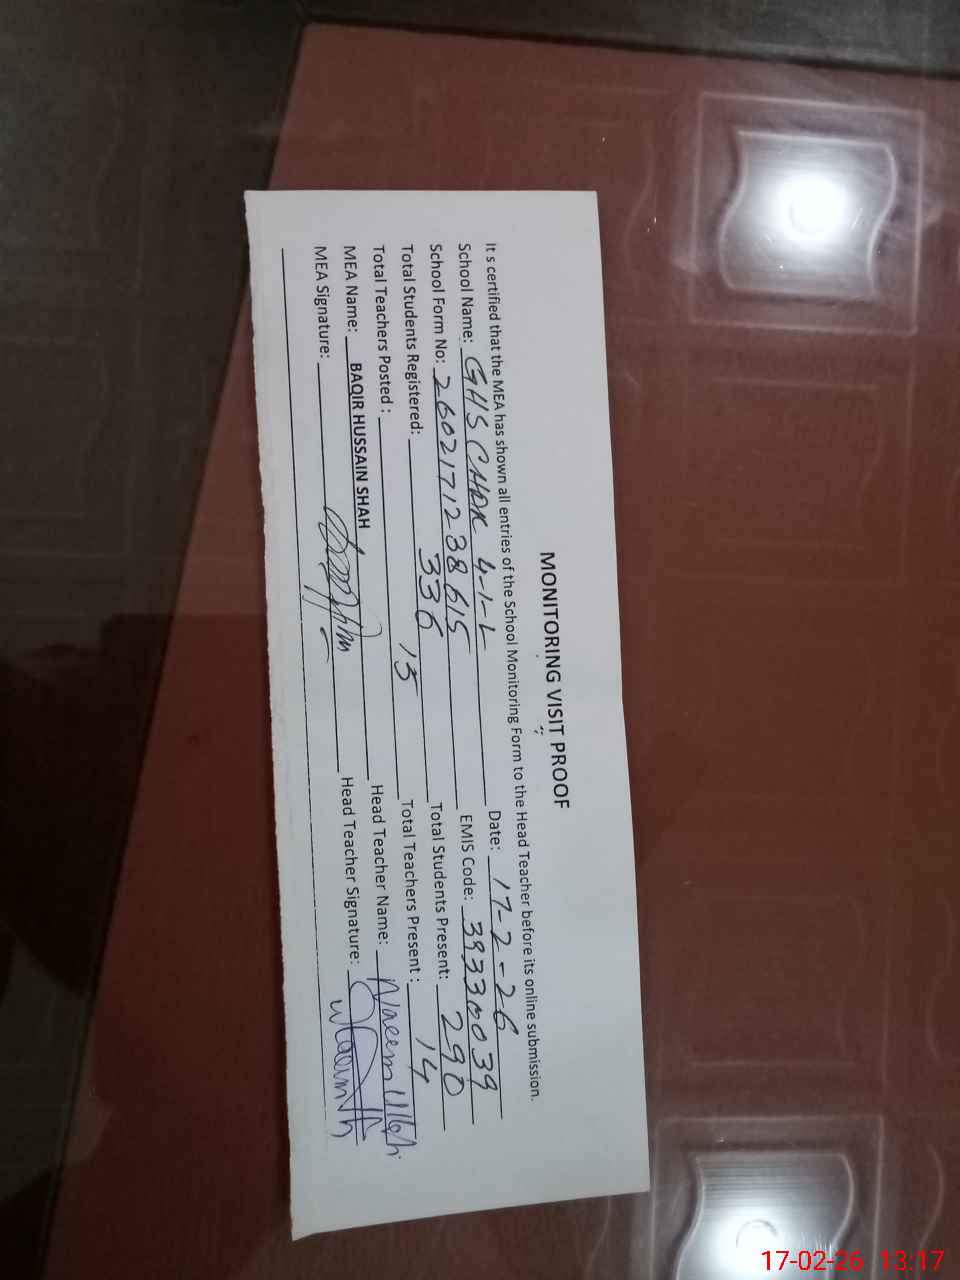 MONITORING VISIT PROOF
It s certified that the MEA has shown all entries of the School Monitoring Form to the Head Teacher before its online submission.
School Name: GHS CHAK 4-1-L Date: 17-2-26
School Form No: 2602171238615 EMIS Code: 39330039
Total Students Registered: 336 Total Students Present: 290
Total Teachers Posted : 15 Total Teachers Present : 14
MEA Name: BAQIR HUSSAIN SHAH Head Teacher Name: Naeem Ullah
MEA Signature: Head Teacher Signature:
17-02-26 13:17